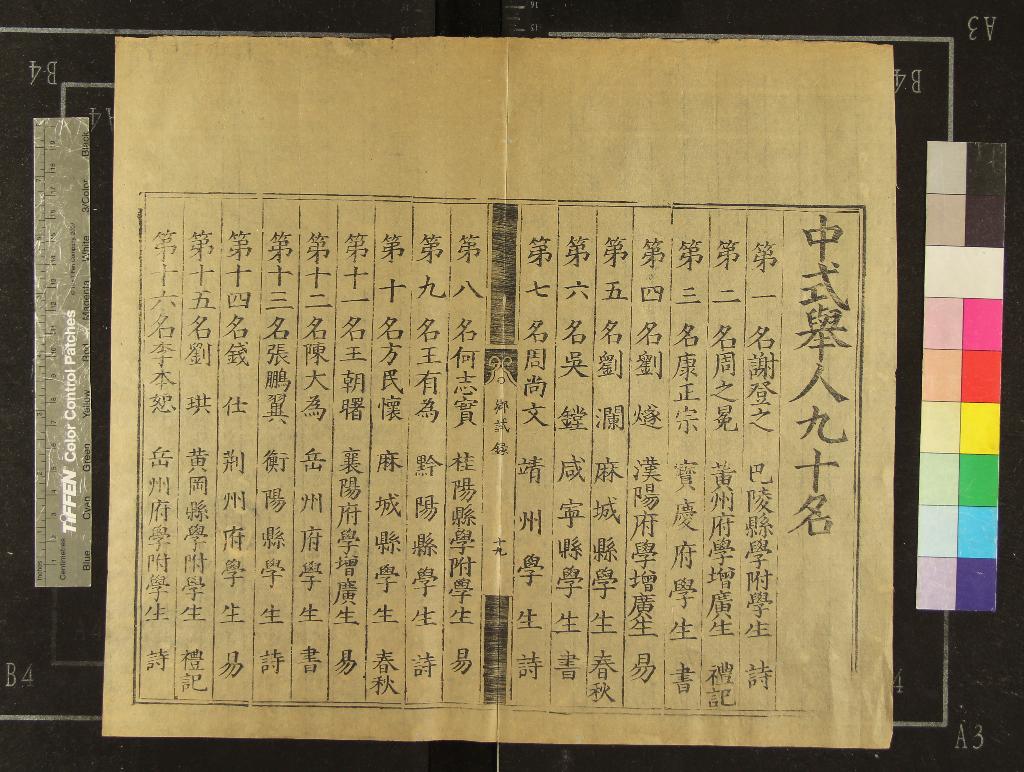 中式舉人九十名
第一名謝登之 巴陵縣學附學生 詩
第二名周之冕 黃州府學增廣生 禮記
第三名康正宗 寶慶府學生 書
第四名劉燧 漢陽府學增廣生 易
第五名劉瀾 麻城縣學生 春秋
第六名吳鏜 咸寧縣學生 書
第七名周尚文 靖州學生 詩
鄉試錄 十九
第八名何志實 桂陽縣學附學生 易
第九名王有為 黔陽縣學生 詩
第十名方民懷 麻城縣學生 春秋
第十一名王朝曙 襄陽府學增廣生 易
第十二名陳大為 岳州府學生 書
第十三名張鵬翼 衡陽縣學生 詩
第十四名錢仕 荊州府學生 易
第十五名劉珙 黃岡縣學附學生 禮記
第十六名李本恕 岳州府學附學生 詩
TIFFEN Color Control Patches
Inches
Centimetres
Blue
Cyan
Green
Yellow
Red
Magenta
White
3/Color
Black
B4
A4
B4
A3
B4
A3